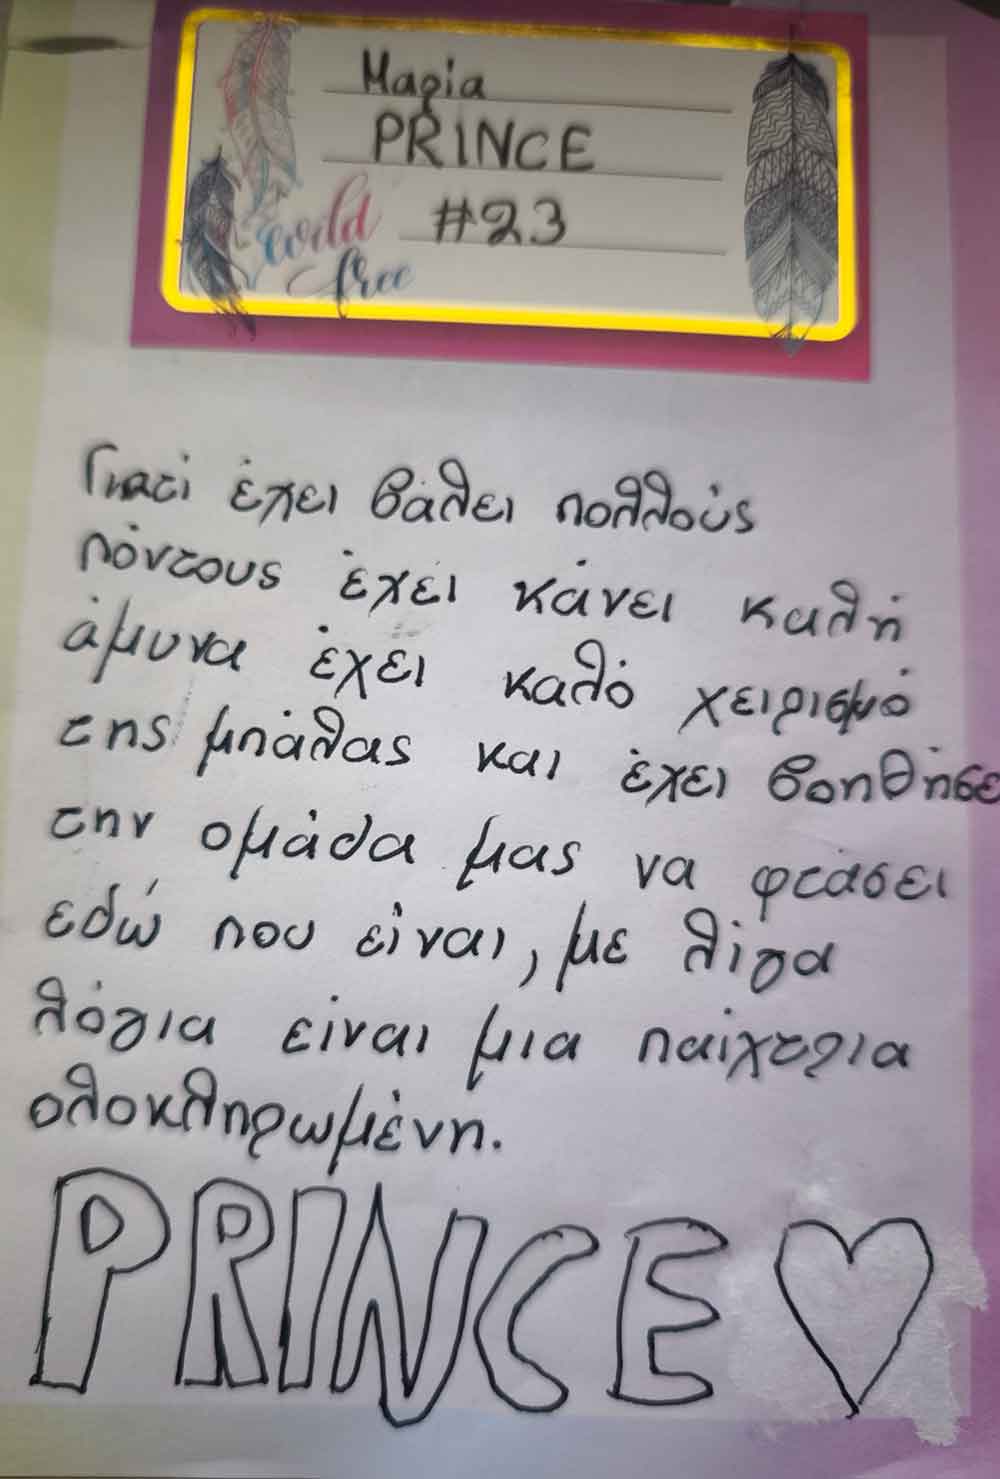 Μαρία
PRINCE
#23
wild
free
Γιατί έχει βάλει πολλούς
πόντους έχει κάνει καλή
άμυνα έχει καλό χειρισμό
της μπάλας και έχει βοηθήσε
την ομάδα μας να φτάσει
εδώ που είναι, με λίγα
λόγια είναι μια παίχτρια
ολοκληρωμένη.
PRINCE